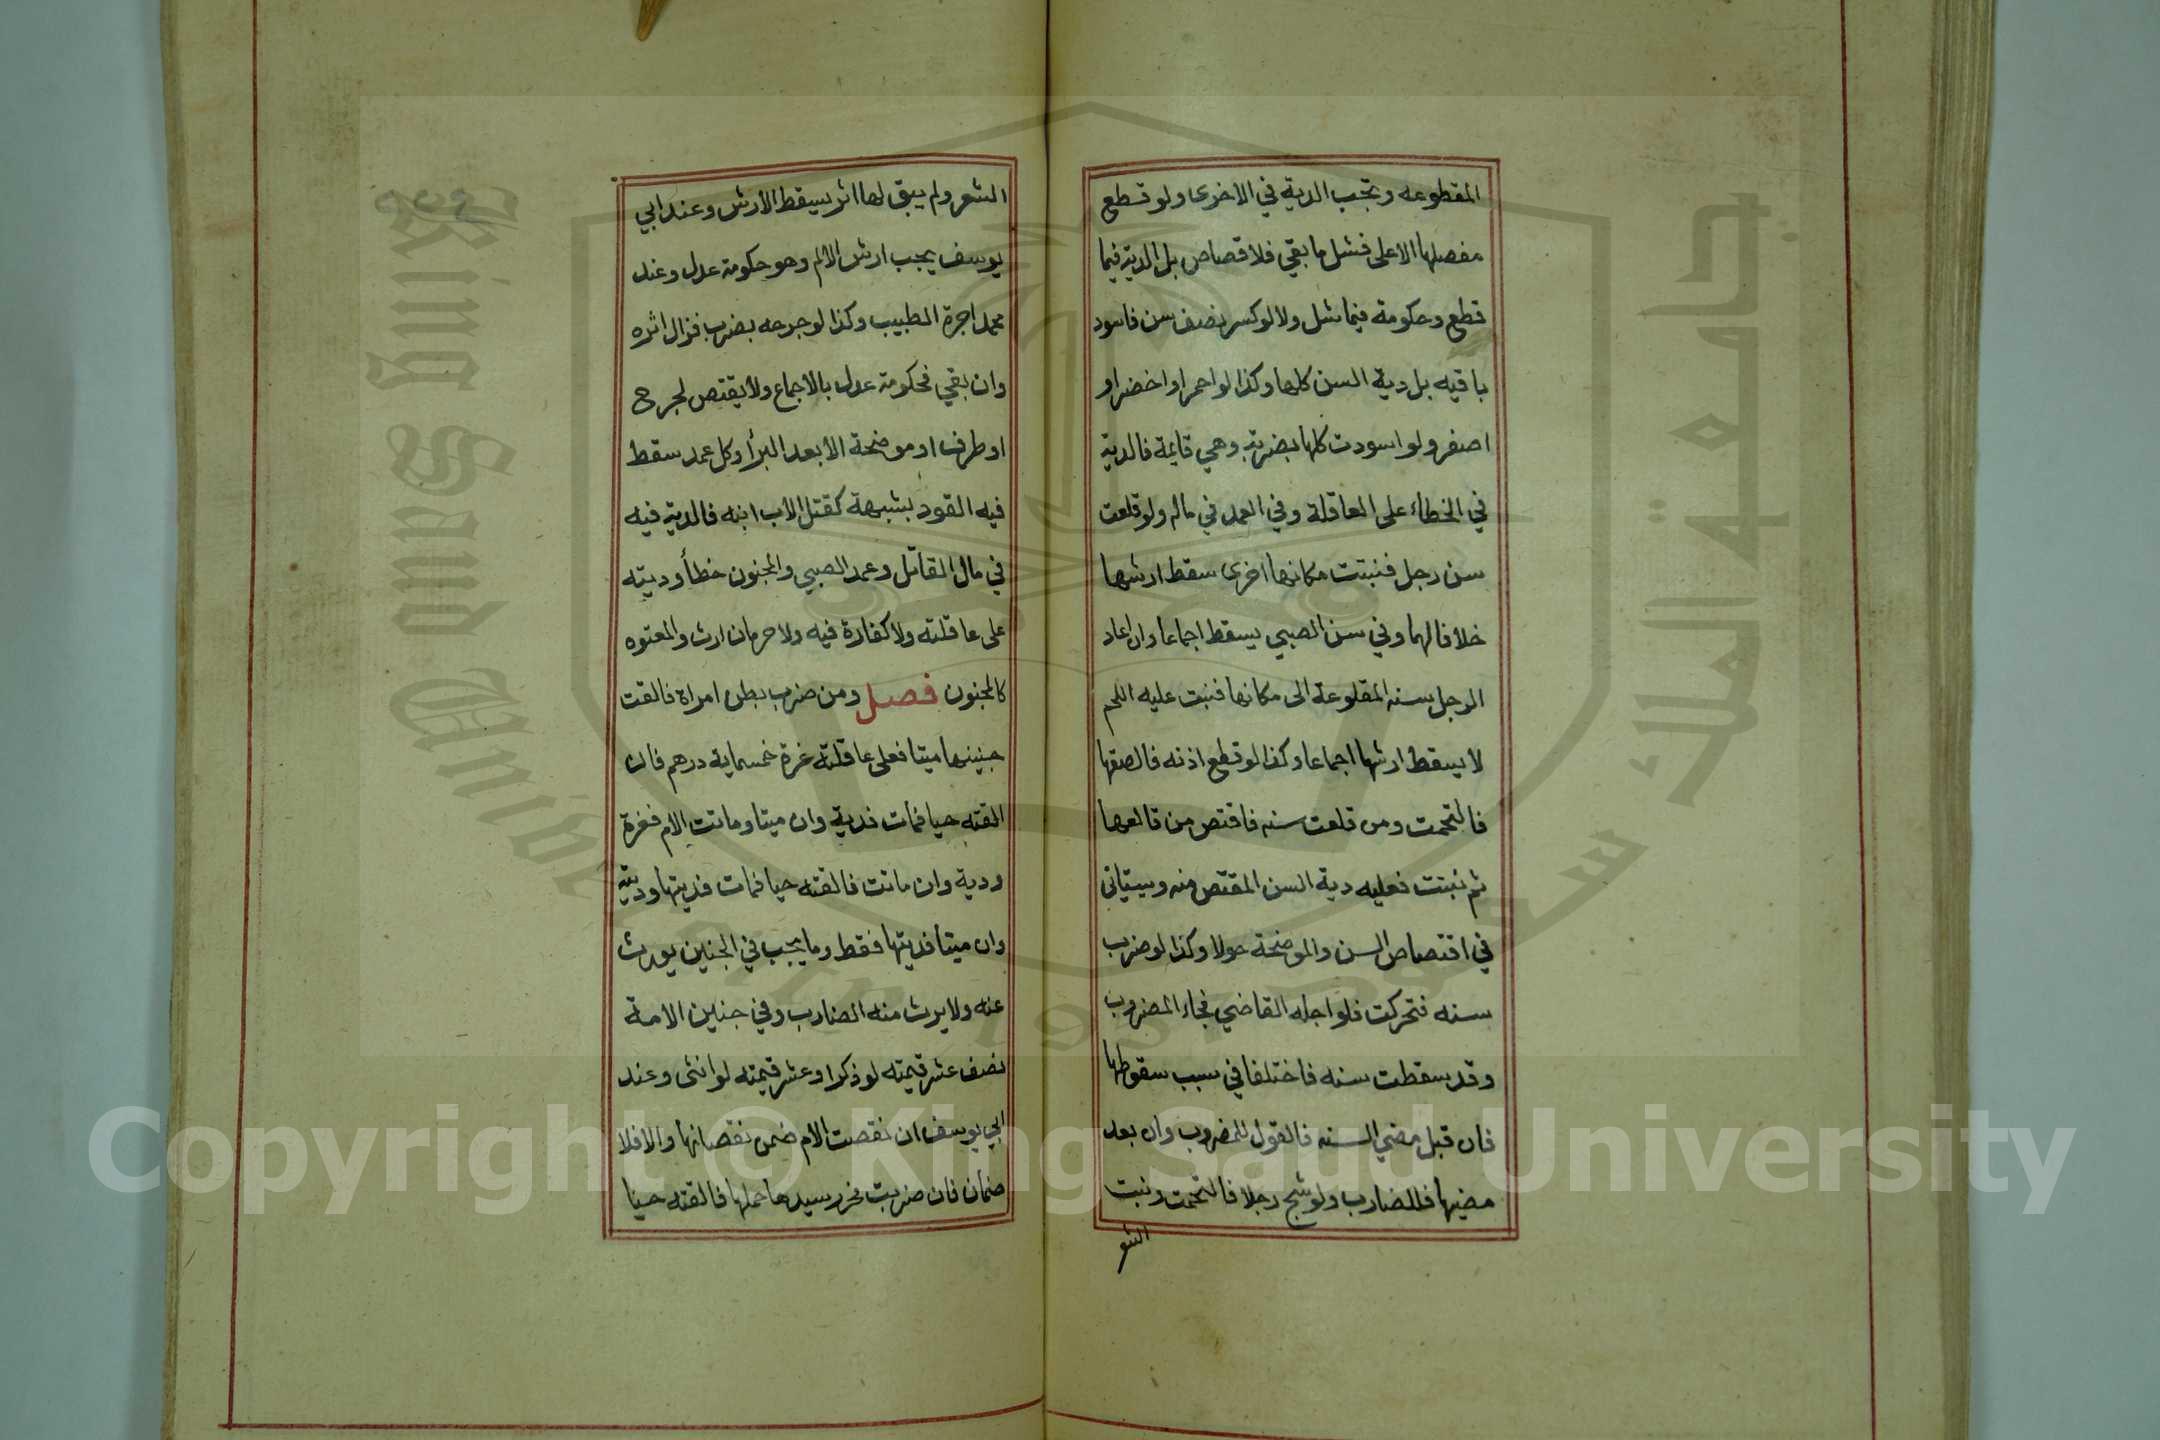 المقطوعه وتجب الدية في الاخرى ولو قطع
مفصلها الاعلى فشل ما بقي فلا قصاص بل الدية فيما
قطع وحكومة فيما شل ولا لو كسر نصف سن فاسود
باقيه بل دية السن كلها وكذا لو احمر او اخضر او
اصفر ولو اسودت كلها بضربة وهي قايمة فالدية
في الخطاء على العاقلة وفي العمد في ماله ولو قلعت
سن رجل فنبتت مكانها اخرى سقط ارشها
خلافا لهما وفي سن الصبي يسقط اجماعا وان اعاد
الرجل سنه المقلوعة الى مكانها فنبت عليه اللحم
لا يسقط ارشها اجماعا وكذا لو قطع اذنه فالصقها
فالتحمت ومن قلعت سنه فاقتص من قالعها
ثم نبتت فعليه دية السن المقتص منه ويستاني
في اقتصاص السن والموضحة حولا وكذا لو ضرب
سنه فتحركت فلو اجله القاضي فجاء المضروب
وقد سقطت سنه فاختلفا في سبب سقوطها
فان قبل مضي السنه فالقول للمضروب وان بعد
مضيها فللضارب ولو شج رجلا فالتحمت ونبت
الشعر
الشعر ولم يبق لها اثر يسقط الارش وعند ابي
يوسف يجب ارش الالم وهو حكومة عدل وعند
محمد اجرة الطبيب وكذا لو جرحه بضرب فزال اثره
وان بقي فحكومة عدل بالاجماع ولا يقتص لجرح
او طرف او موضحة الا بعد البرأ وكل عمد سقط
فيه القود بشبهة كقتل الاب ابنه فالدية فيه
في مال القاتل وعمد الصبي والمجنون خطأ وديته
على عاقلته ولا كفارة فيه ولا حرمان ارث والمعتوه
كالمجنون فصل ومن ضرب بطن امراة فالقت
جنينها ميتا فعلى عاقلته غرة خمسماية درهم فان
القته حيا فمات فدية وان ميتا وماتت الام فغرة
ودية وان ماتت فالقته حيا فمات فديتها وديته
وان ميتا فديتها فقط وما يجب في الجنين يورث
عنه ولا يرث منه الضارب وفي جنين الامة
نصف عشر قيمته لو ذكرا وعشر قيمته لو انثى وعند
ابي يوسف ان نقصت الام ضمن نقصانها والا فلا
ضمان فان ضربت فحرر سيدها حملها فالقته حيا
Copyright © King Saud University
جامعة الملك سعود
King Saud University
1957